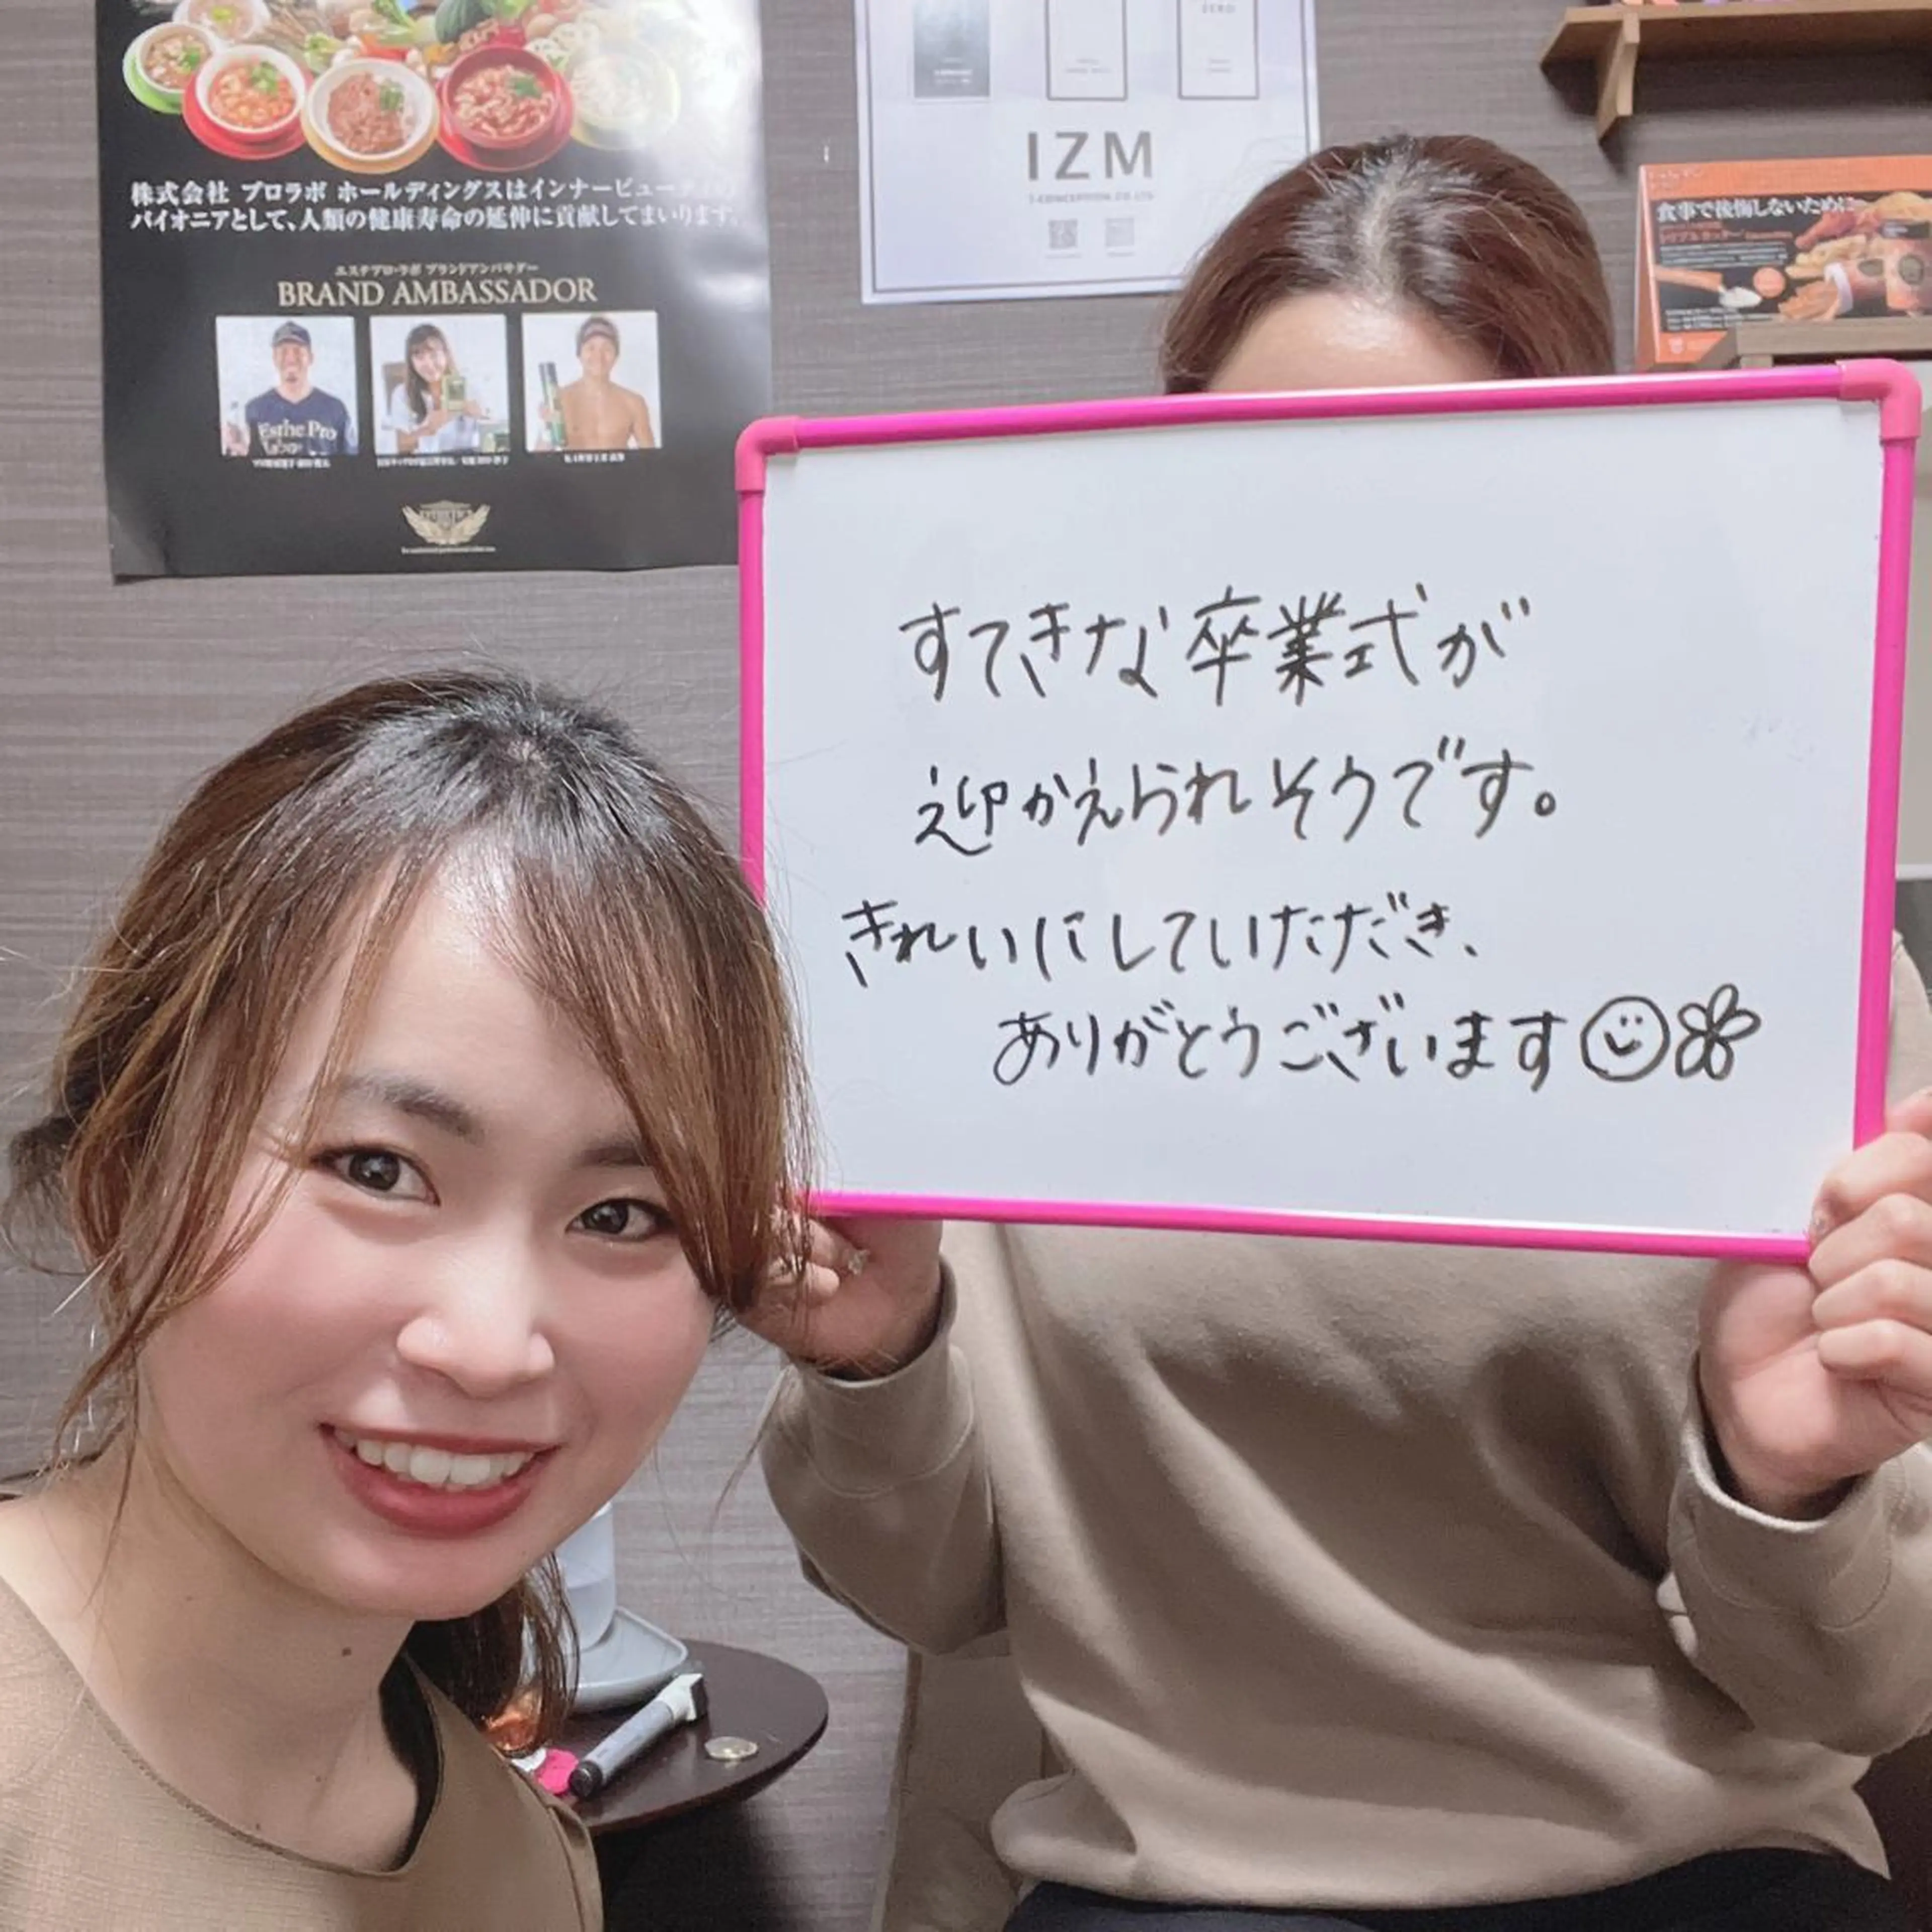 株式会社 プロラボ ホールディングスはインナービューティの
パイオニアとして、人類の健康寿命の延伸に貢献してまいります。
エステプロ・ラボ ブランドアンバサダー
BRAND AMBASSADOR
Esthe Pro
Labo
ZERO
IZM
I-CONCEPTION.CO.LTD
食事で後悔しないために
すてきな卒業式が
迎かえられそうです。
きれいにしていただき、
ありがとうございます